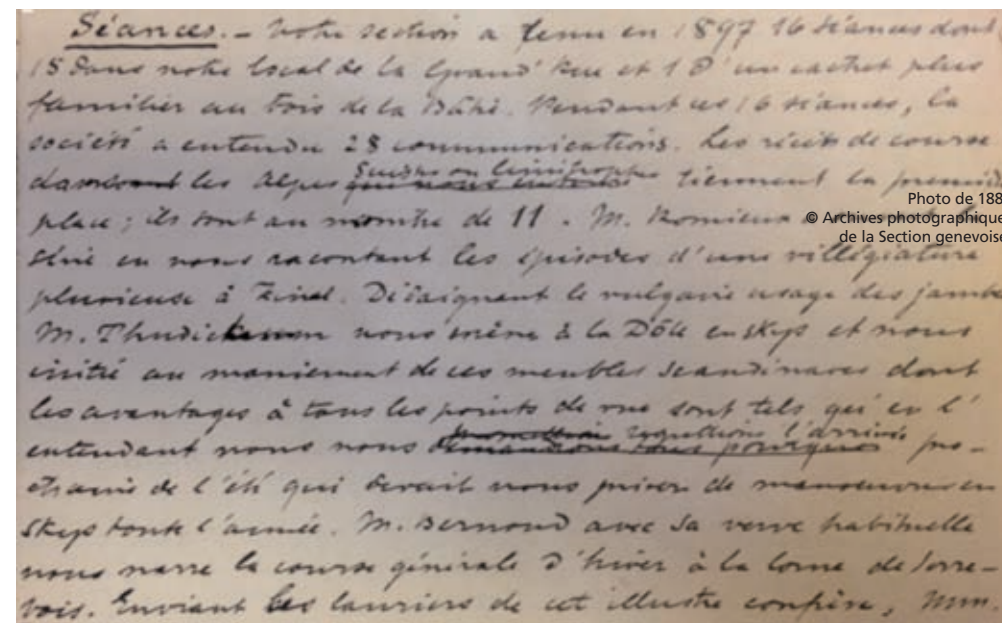 Séances. – Notre section a tenu en 1897 16 séances dont
15 dans notre local de la Grand'Rue et 1 d'un cachet plus
familier au bois de la Bâtie. Pendant ces 16 séances, la
société a entendu 28 communications. Les récits de course
dans les Alpes Suisses ou limitrophes tiennent la première
place; ils sont au nombre de 11. M. Romieux
Photo de 188
© Archives photographique
de la Section genevoise
série en nous racontant les épisodes d'une villégiature
pluvieuse à Zinal. Dédaignant le vulgaire usage des jambes
M. Thudichum nous mène à la Dôle en skys et nous
initie au maniement de ces meubles scandinaves dont
les avantages à tous les points de vue sont tels qu'en l'
entendant nous nous regrettions l'arrivée pro-
chaine de l'été qui devait nous priver de manoeuvrer en
skys toute l'année. M. Bernoud avec sa verve habituelle
nous narre la course générale d'hiver à la Corne de Sorre-
bois. Enviant les lauriers de cet illustre confrère, Mm.